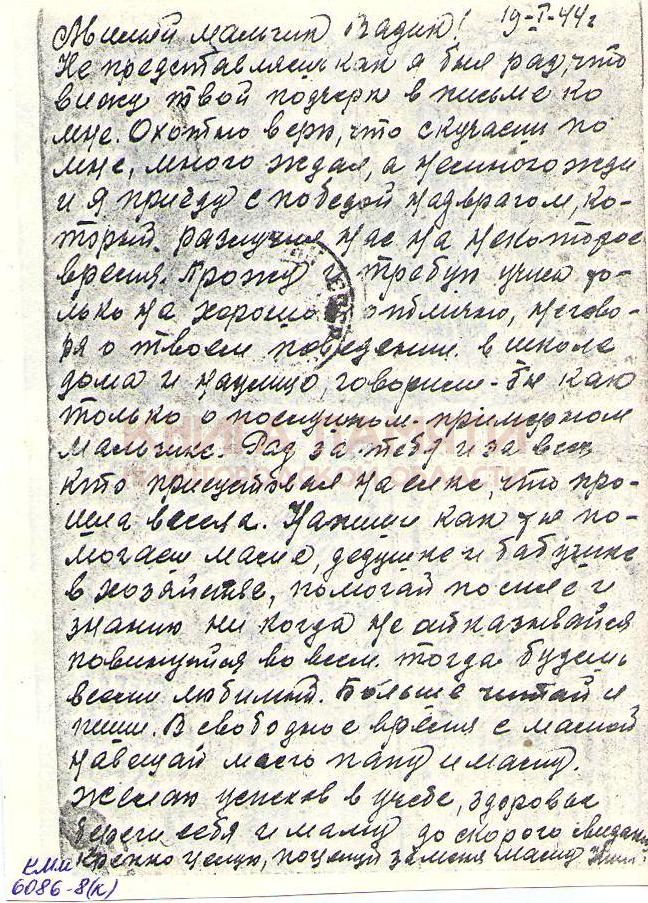 Милый мальчик Вадик! 19-I-44г
Не представляешь как я был рад, что
вижу твой подчерк в письме ко
мне. Охотно верю, что скучаеш по
мне, много ждал, а немного жди
и я приеду с победой над врагом, ко-
торый разлучил нас на некоторое
время. Прошу и требую учись то-
лько на хорошо отлично, не гово-
ря о твоем поведении в школе
дома и на улице, говорил-бы как
только о послушном-примерном
мальчике. Рад за тебя и за всех
кто присуствовал на елке, что про-
шла весела. Напиши как ты по-
могаеш маме, дедушке и бабушке
в хозяйстве, помогай по силе и
знанию ни когда не отказывайся
повинуйся во всем. тогда будешь
всеми любимый. Больше читай и
пиши. В свободное время с мамой
навещай моего папу и маму.
Желаю успехов в учебе, здоровье
береги себя и маму до скорого свидания
Крепко целую, поцелуй за меня маму
КНИГА ПАМЯТИ
НОВГОРОДСКОЙ ОБЛАСТИ
КММ
6086-8(к)